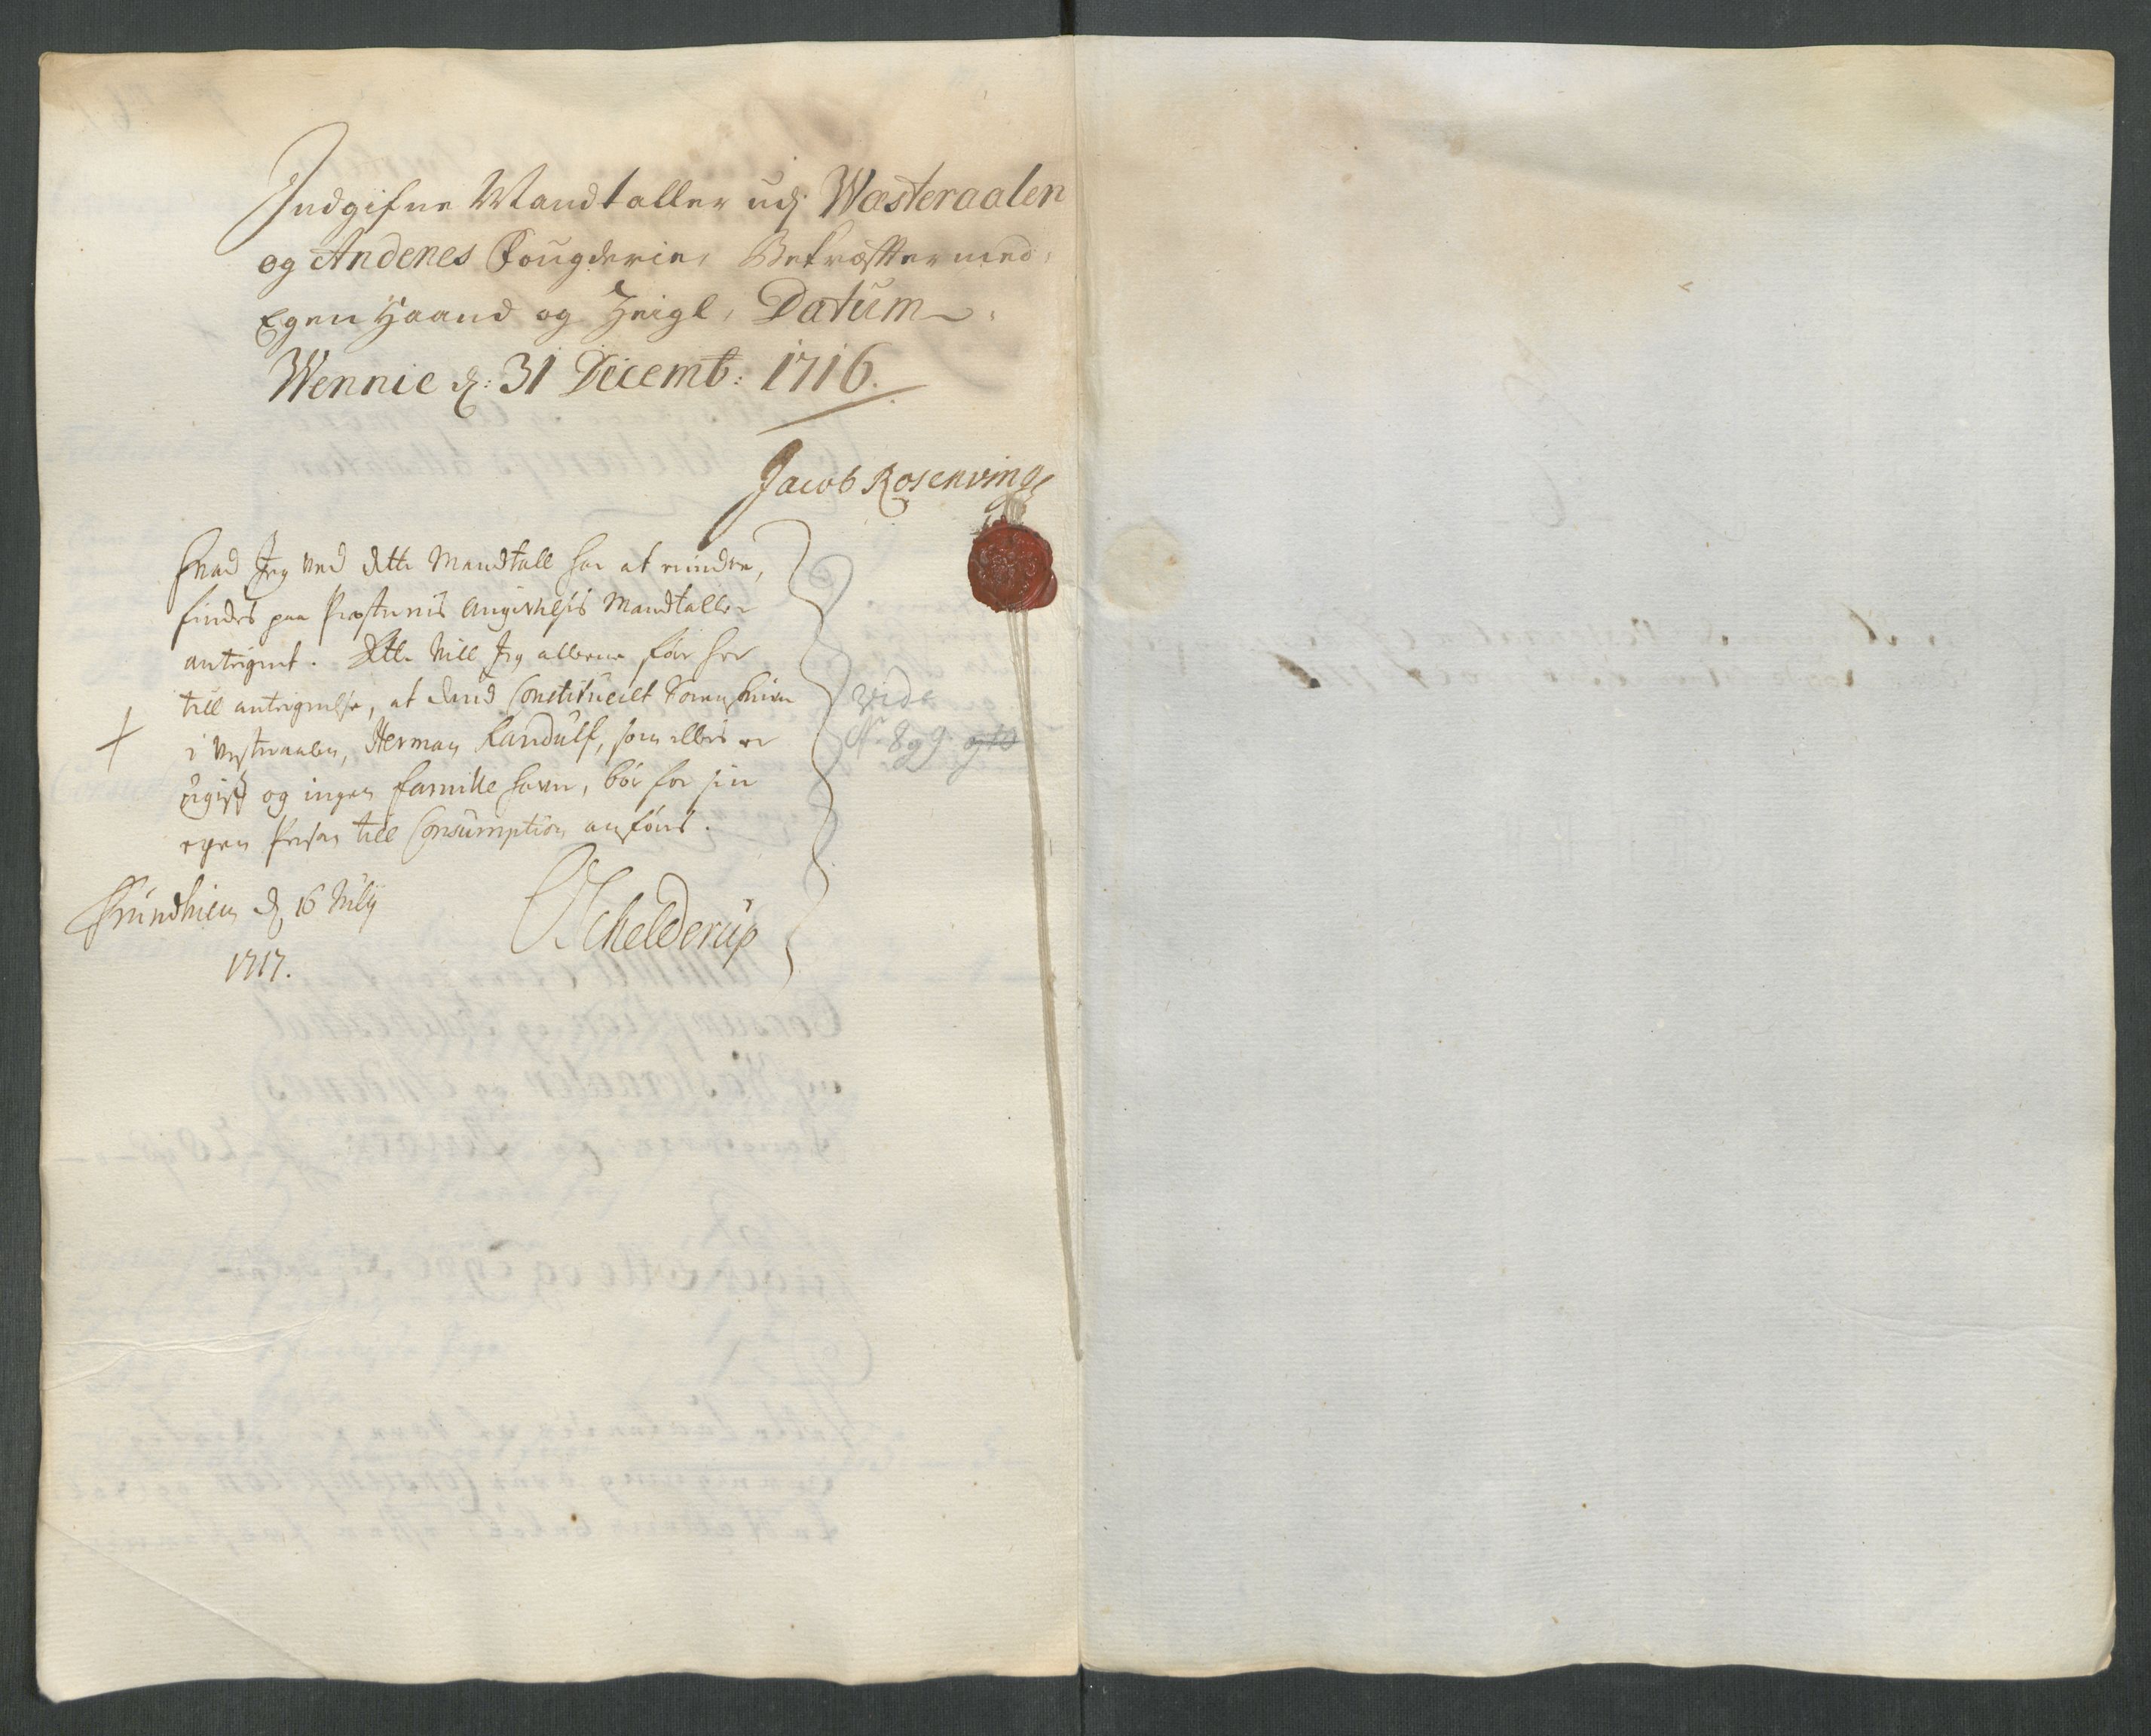 Indgifne Mandtaller udj Wæsteraalen
og Andenes Fougderie, Bekræfter med
Egen Haand og Zeigl, Datum
Wennie d: 31 Decemb: 1716.
Jacob Rosenvinge
Hvad Jeg ved dette Mandtall har at erindre,
findes paa Præsternis Angivelsis Mandtaller
antegnet. Dette vill Jeg alleene før her
till antegnelse, at dend Constitueret Sorenskriver
i Vesteraalen, Herman Randulf, som ellers er
ugift og ingen familie haver, bør for sin
egen Person till Consumption anføris.
Trundhiem d 16 July
1717.
Schelderup
vide
No. 8 og 9. og 10